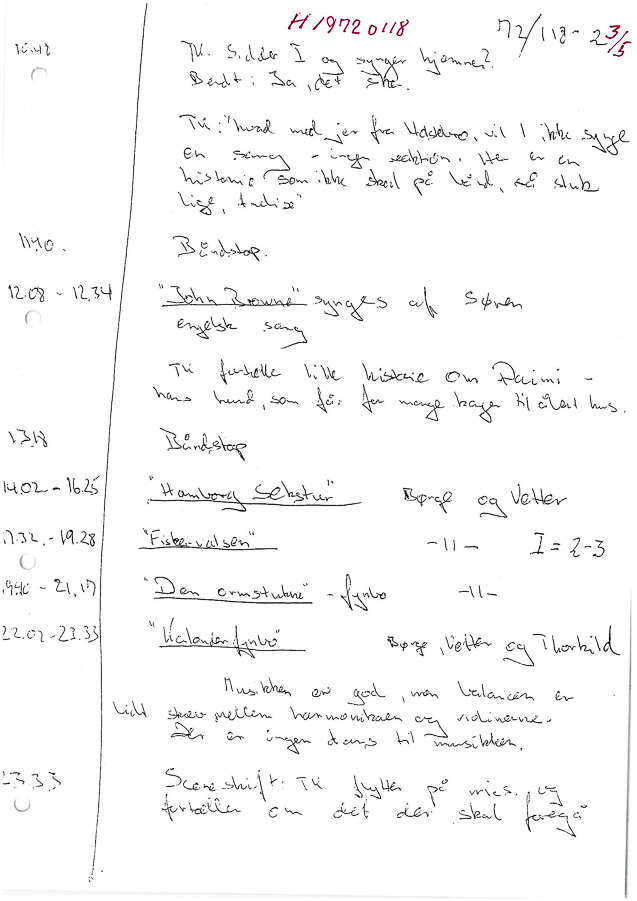 H1972 0118 72/118-2 3/5
10.48 TK. Sidder I og synger hjemme?
Bendt: Ja, det sker.
TK: "hvad med jer fra Holstebro, vil I ikke synge
en sang - ingen reaktion. Her er en
historie som ikke skal på bånd, så sluk
lige,
11.40. Båndstop.
12.08 - 12.34 "John Browne" synges af Søren
engelsk sang
TK fortælle lille historie om Raimi -
hans hund, som får for mange kager til åbent hus.
13.18 Båndstop
14.02 - 16.25 "Hamborg Sekstur" Børge og Vetter
17.32. - 19.28 "Fiskervalsen" -11- I = 2-3
19.40 - 21.17 "Den ormstukne" - fynbo -11-
22.02 - 23.33 "Kalander fynbo" Børge, Vetter og Thorkild
Musikken er god, men balancen er
lidt skæv mellem harmonikaen og violinerne.
Der er ingen dans til musikken.
23.33 Sceneskift: TK flytter på mics. og
fortæller om det der skal foregå